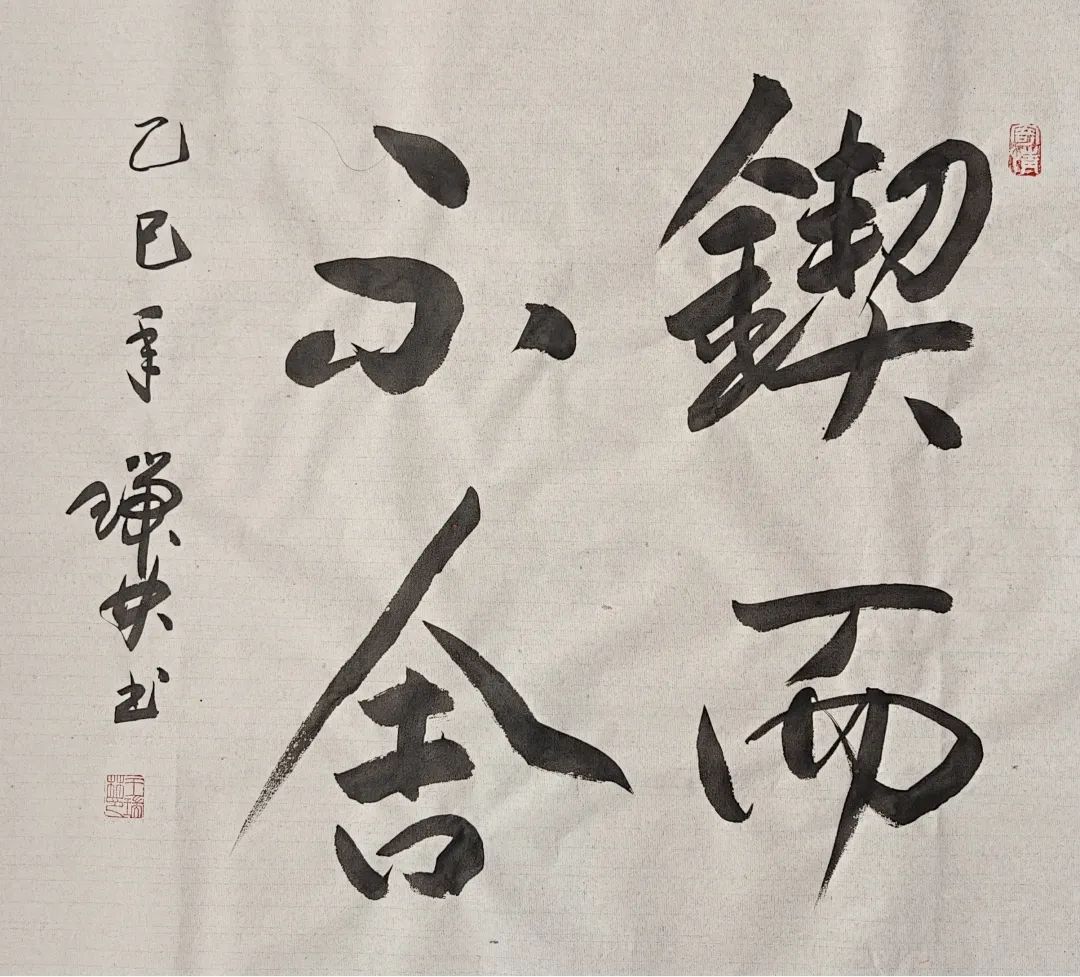 鍥而
不舍
乙巳年
书